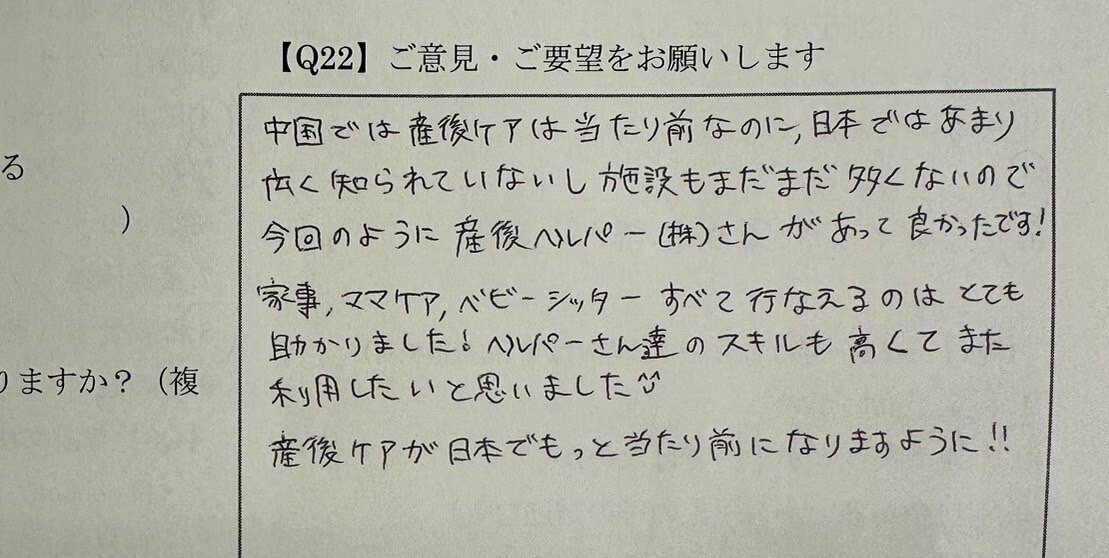 【Q22】ご意見・ご要望をお願いします
中国では産後ケアは当たり前なのに,日本ではあまり
広く知られていないし施設もまだまだ多くないので
今回のように産後ヘルパー(株)さんがあって良かったです!
る
)
家事,ママケア,ベビーシッターすべて行なえるのはとても
助かりました!ヘルパーさん達のスキルも高くてまた
りますか?(複
利用したいと思いました
産後ケアが日本でもっと当たり前になりますように!!